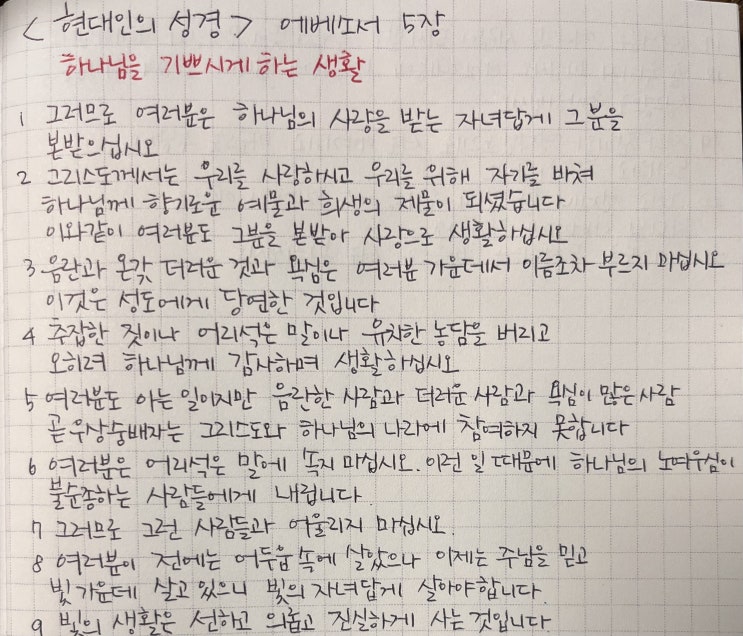 <현대인의 성경> 에베소서 5장
하나님을 기쁘시게 하는 생활
1 그러므로 여러분은 하나님의 사랑을 받는 자녀답게 그분을
본받으십시오
2 그리스도께서는 우리를 사랑하시고 우리를 위해 자기를 바쳐
하나님께 향기로운 예물과 희생의 제물이 되셨습니다
이와같이 여러분도 그분을 본받아 사랑으로 생활하십시오
3 음란과 온갖 더러운 것과 욕심은 여러분 가운데서 이름조차 부르지 마십시오
이것은 성도에게 당연한 것입니다
4 추잡한 짓이나 어리석은 말이나 유치한 농담을 버리고
오히려 하나님께 감사하며 생활하십시오
5 여러분도 아는 일이지만 음란한 사람과 더러운 사람과 욕심이 많은 사람
곧 우상숭배자는 그리스도와 하나님의 나라에 참여하지 못합니다
6 여러분은 어리석은 말에 속지 마십시오. 이런 일 때문에 하나님의 노여우심이
불순종하는 사람들에게 내립니다
7 그러므로 그런 사람들과 어울리지 마십시오.
8 여러분이 전에는 어두움 속에 살았으나 이제는 주님을 믿고
빛 가운데 살고 있으니 빛의 자녀답게 살아야합니다.
9 빛의 생활은 선하고 의롭고 진실하게 사는 것입니다